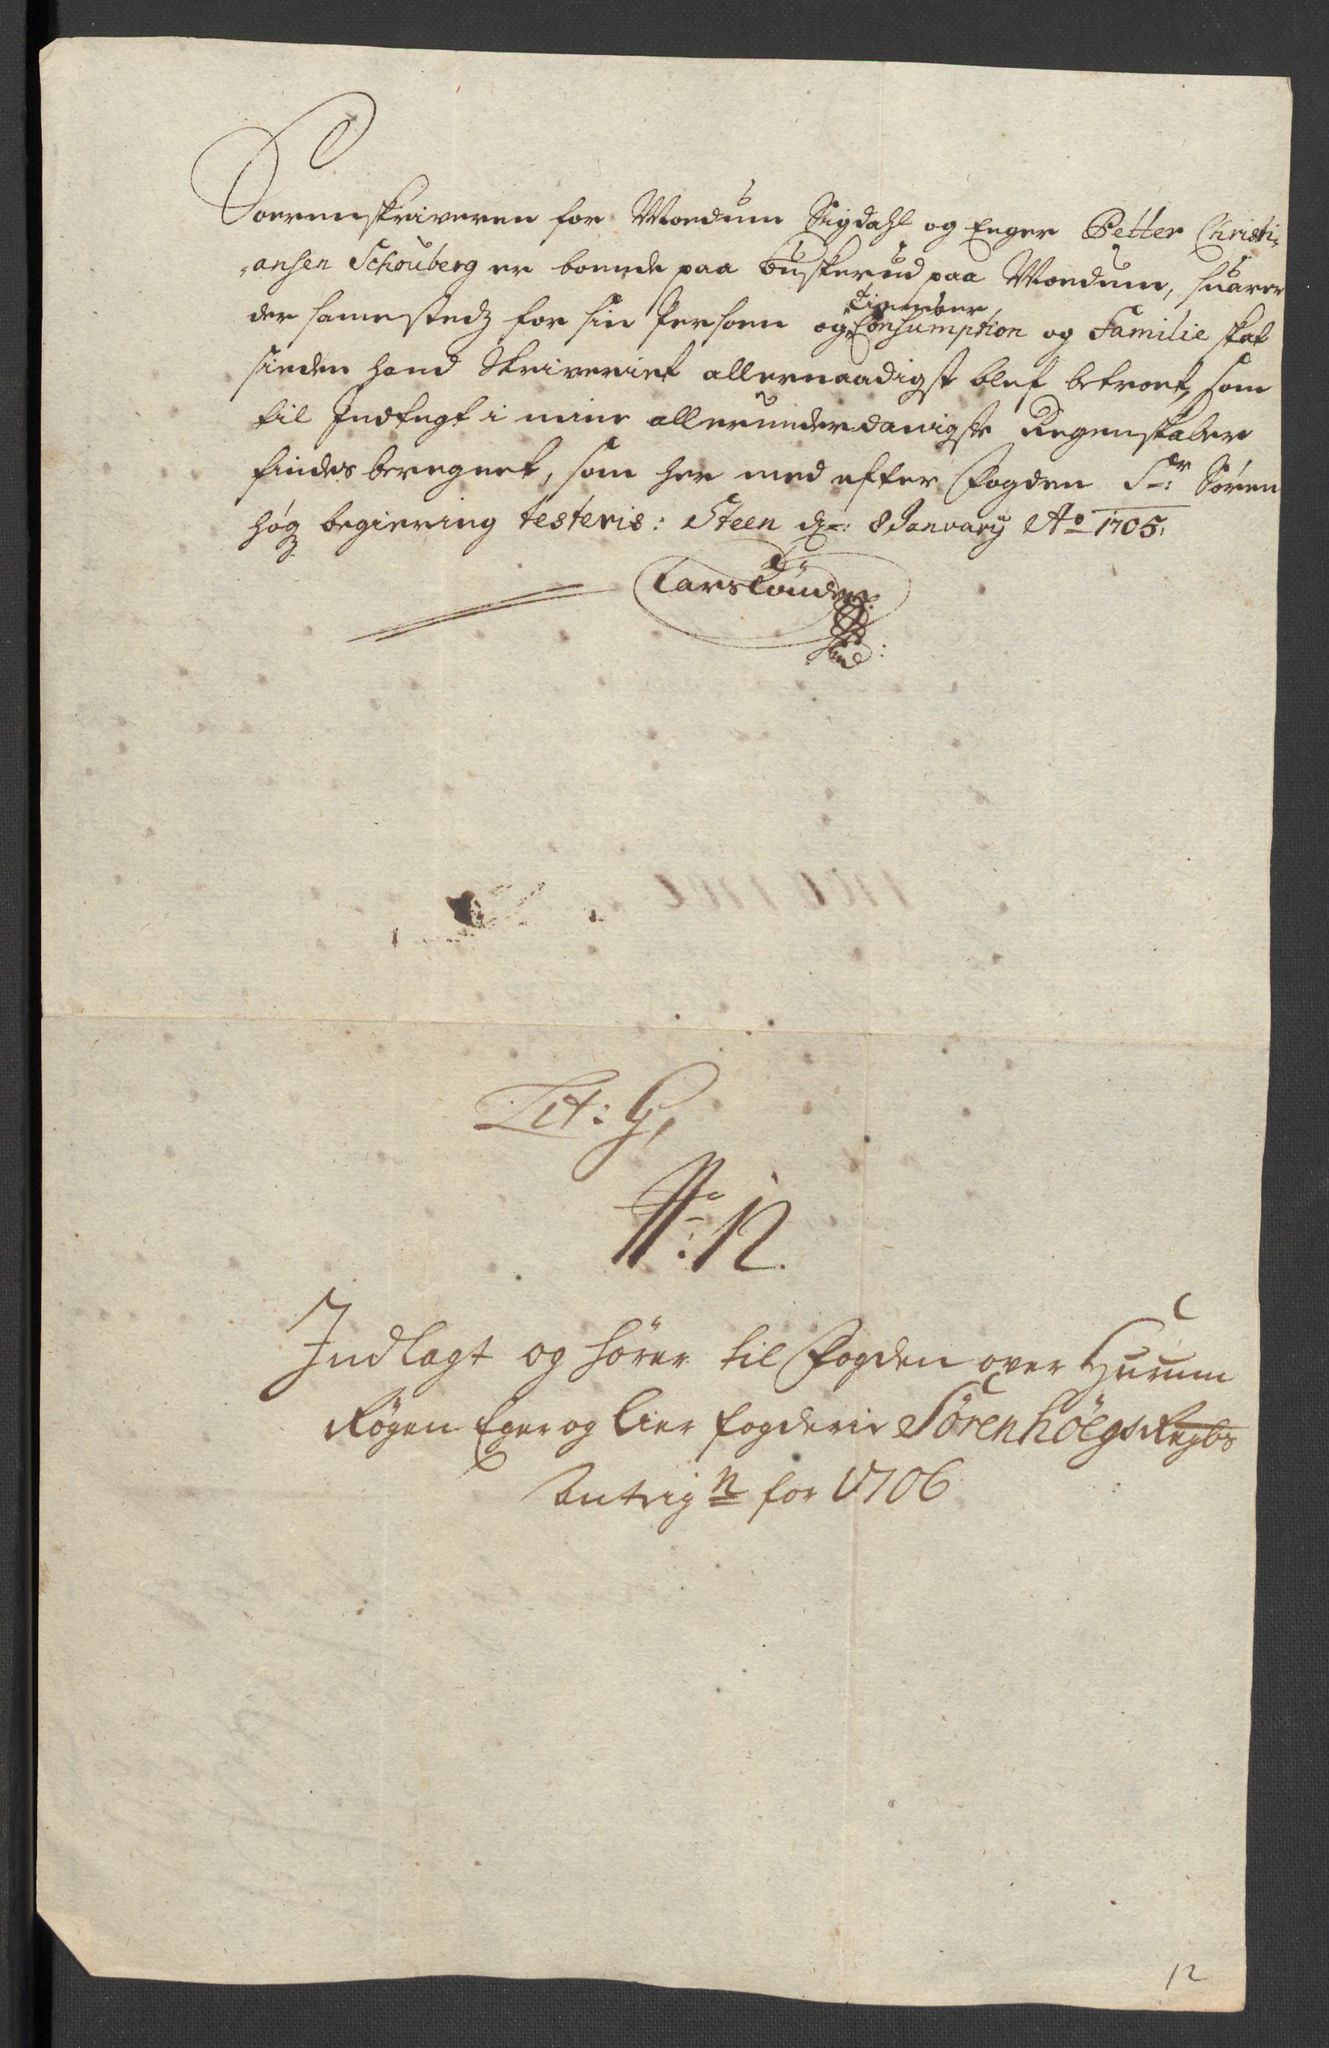 Soerenskriveren for Moedum Sigdahl og Eeger Petter Christi-
-ansen Schouberg er boende paa Buskerud paa Moedum, suarer
der samestedz for sin Persoen og Tienner Consumption og Familie skat
sieden hand Skriveriet allernaadigst blef betroet, som
til Indtegt i mine allerunderdanigste Regenskaber
findes beregnet, som her med efter Fogden Sr: Sören
høgz begiering testeris: Steen d: 8 January Ao 1705,
Lars Tønder
Lit: G,
No: 12.
Indlagt og hörer til Fogden over Hurum
Røgen Eger og Lier fogderie Sörenhöegs Regbs
for 1706
12